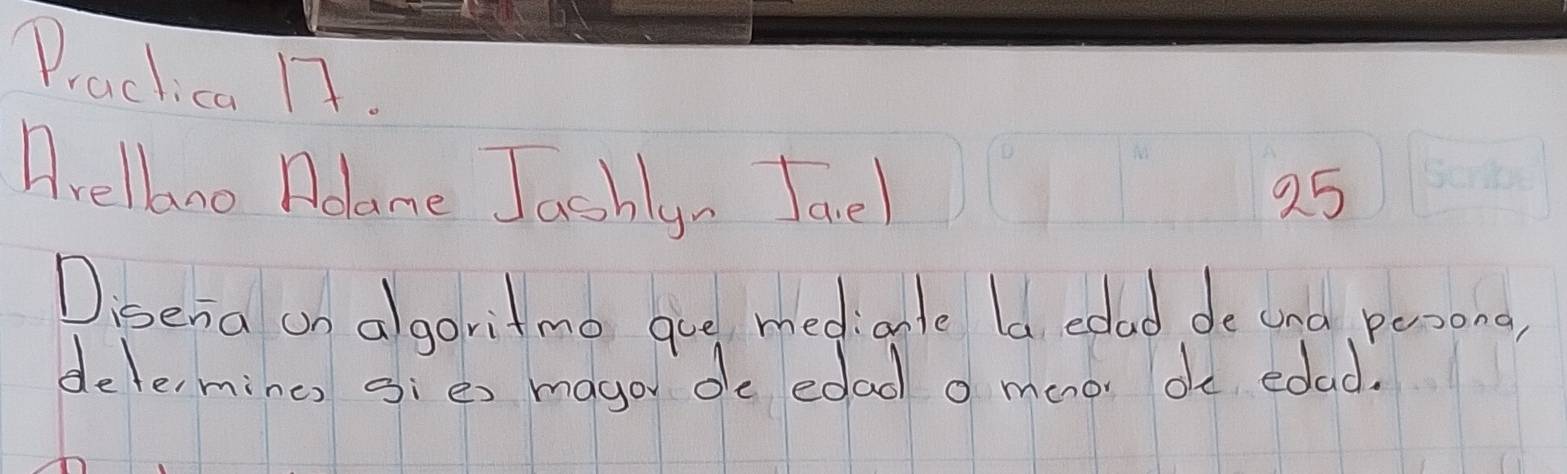 Practica 17.
Arellano Adame Jashlyn Jael 25
D M A Scribe
Diseña un algoritmo que mediante la edad de una persona,
determines si es mayor de edad o menor de edad.